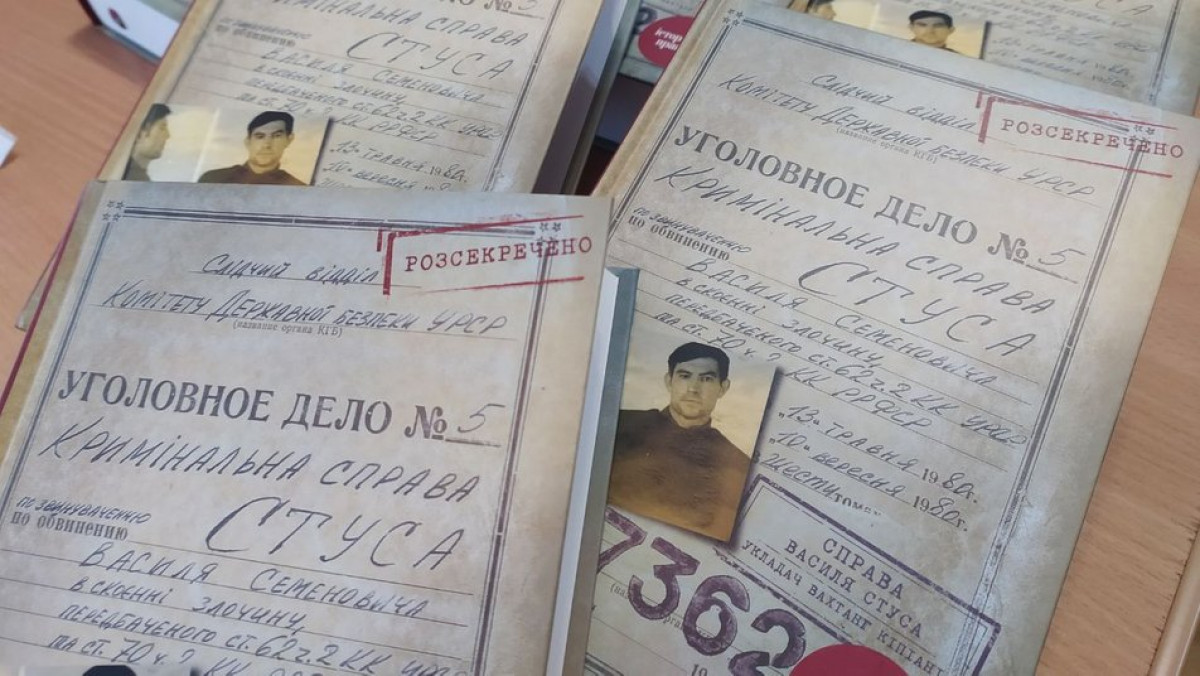 ДЕЛО № 5
КРИМІНАЛЬНА СПРАВА
СТУСА
ВАСИЛЯ СЕМЕНОВИЧА
В СКОЄННІ ЗЛОЧИНУ,
13 травня 1980
істор
прав
Слідчий відділ
РОЗСЕКРЕЧЕНО
Комітету Державної безпеки УРСР
(название органа КГБ)
УГОЛОВНОЕ ДЕЛО № 5
КРИМІНАЛЬНА СПРАВА
по звинуваченню
по обвинению
СТУСА
ВАСИЛЯ СЕМЕНОВИЧА
В СКОЄННІ ЗЛОЧИНУ,
ПЕРЕДБАЧЕНОГО СТ. 62 Ч. 2 КК УРСР
ТА СТ. 70 Ч. 2 КК РРФСР
„13" травня 1980 г.
„10" вересня 1980 г.
в шести томах
СПРАВА
ВАСИЛЯ СТУСА
УКЛАДАЧ ВАХТАНГ КІПІАНІ
7362
19
Слідчий відділ
РОЗСЕКРЕЧЕНО
Комітету Державної безпеки УРСР
(название органа КГБ)
УГОЛОВНОЕ ДЕЛО № 5
КРИМІНАЛЬНА СПРАВА
по звинуваченню
по обвинению
СТУСА
ВАСИЛЯ СЕМЕНОВИЧА
В СКОЄННІ ЗЛОЧИНУ,
ПЕРЕДБАЧЕНОГО СТ. 62 Ч. 2 КК УРСР
ТА СТ. 70 Ч. 2 КК